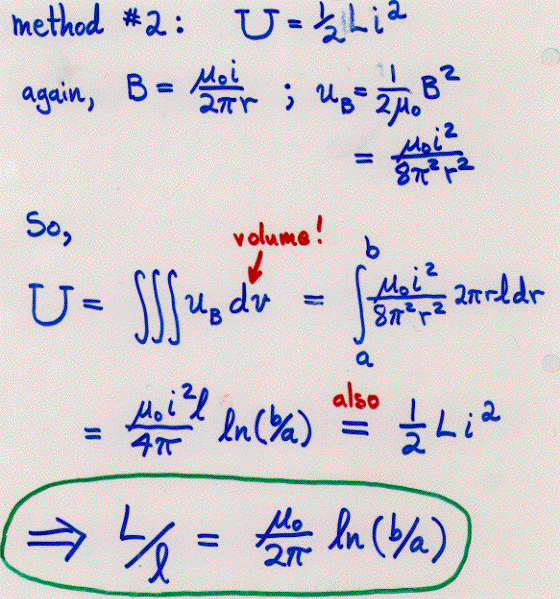 method #2: U = ½ L i²
again, B = μ₀i / 2πr ; u_B = 1/2μ₀ B²
= μ₀i² / 8π²r²
So,
volume!
U = ∭ u_B dv = ∫ₐᵇ μ₀i² / 8π²r² 2πrldr
= μ₀i²l / 4π ln(b/a) also = 1/2 L i²
⇒ L/l = μ₀ / 2π ln(b/a)